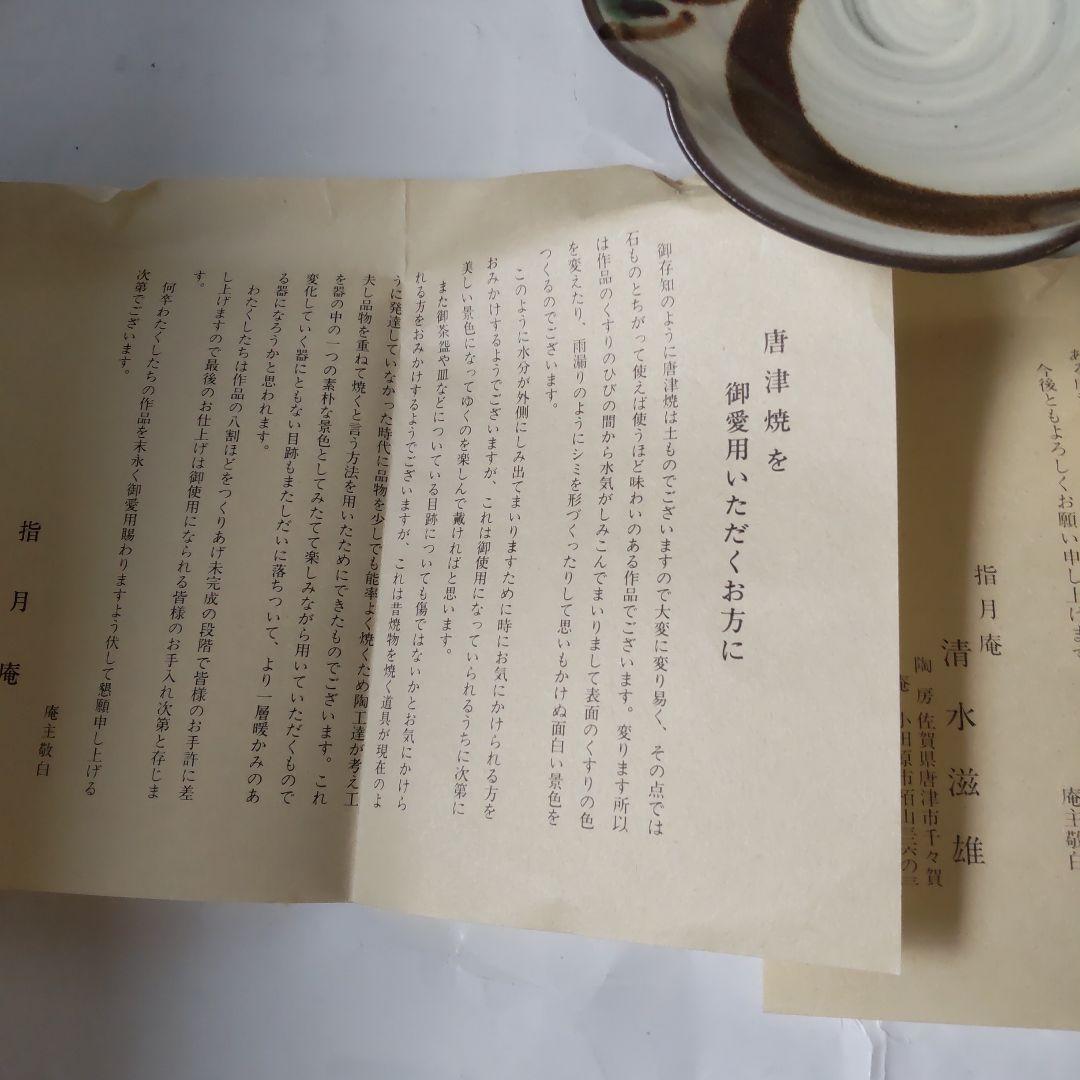 唐津焼を
御愛用いただくお方に
御存知のように唐津焼は土ものでございますので大変に変り易く、その点では
石ものとちがって使えば使うほど味わいのある作品でございます。変ります所以
は作品のくすりのひびの間から水気がしみこんでまいりまして表面のくすりの色
を変えたり、雨漏りのようにシミを形づくったりして思いもかけぬ面白い景色を
つくるのでございます。
このように水分が外側にしみ出てまいりますために時にお気にかけられる方を
おみかけするようでございますが、これは御使用になっていられるうちに次第に
美しい景色になってゆくのを楽しんで戴ければと思います。
また御茶盌や皿などについている目跡についても傷ではないかとお気にかけら
れる方をおみかけするようでございますが、これは昔焼物を焼く道具が現在のよ
うに発達していなかった時代に品物を少しでも能率よく焼くため陶工達が考え工
夫し品物を重ねて焼くと言う方法を用いたためにできたものでございます。これ
を器の中の一つの素朴な景色としてみたてて楽しみながら用いていただくもので
変化していく器にともない目跡もまたしだいに落ちついて、より一層暖かみのあ
る器になろうかと思われます。
わたくしたちは作品の八割ほどをつくりあげ未完成の段階で皆様のお手許に差
し上げますので最後のお仕上げは御使用になられる皆様のお手入れ次第と存じま
す。
何卒わたくしたちの作品を末永く御愛用賜わりますよう伏して懇願申し上げる
次第でございます。
指月庵
庵主敬白
今後ともよろしくお願い申し上げます
庵主敬白
指月庵
清水滋雄
陶房 佐賀県唐津市千々賀
庵 小田原市